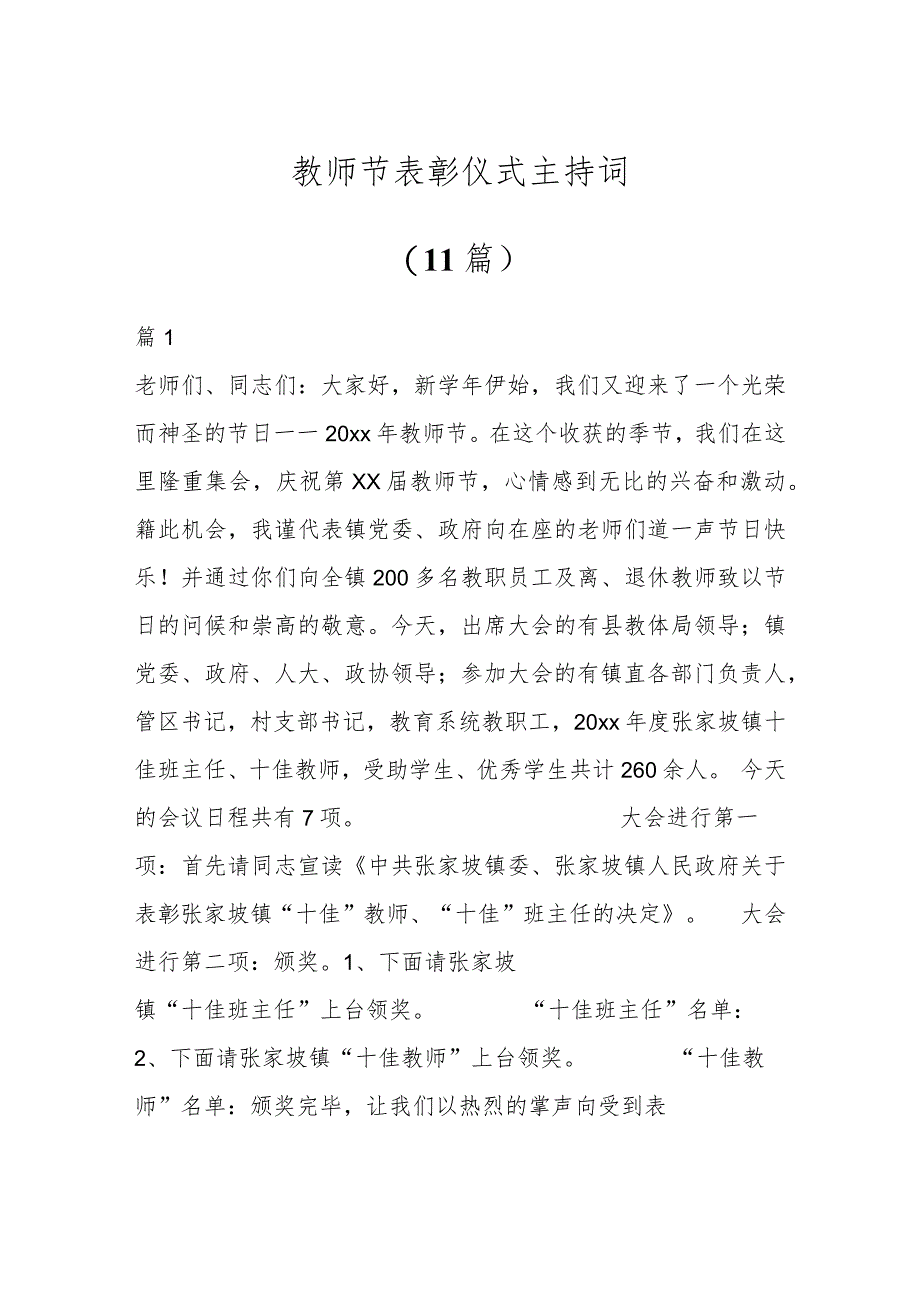 教师节表彰仪式主持词
（11篇）
篇1
老师们、同志们：大家好，新学年伊始，我们又迎来了一个光荣
而神圣的节日一一20xx年教师节。在这个收获的季节，我们在这
里隆重集会，庆祝第XX届教师节，心情感到无比的兴奋和激动。
籍此机会，我谨代表镇党委、政府向在座的老师们道一声节日快
乐！并通过你们向全镇200多名教职员工及离、退休教师致以节
日的问候和崇高的敬意。今天，出席大会的有县教体局领导；镇
党委、政府、人大、政协领导；参加大会的有镇直各部门负责人，
管区书记，村支部书记，教育系统教职工，20xx年度张家坡镇十
佳班主任、十佳教师，受助学生、优秀学生共计260余人。 今天
的会议日程共有7项。 大会进行第一
项：首先请同志宣读《中共张家坡镇委、张家坡镇人民政府关于
表彰张家坡镇“十佳”教师、“十佳”班主任的决定》。 大会
进行第二项：颁奖。1、下面请张家坡
镇“十佳班主任”上台领奖。 “十佳班主任”名单：
2、下面请张家坡镇“十佳教师”上台领奖。 “十佳教
师”名单：颁奖完毕，让我们以热烈的掌声向受到表